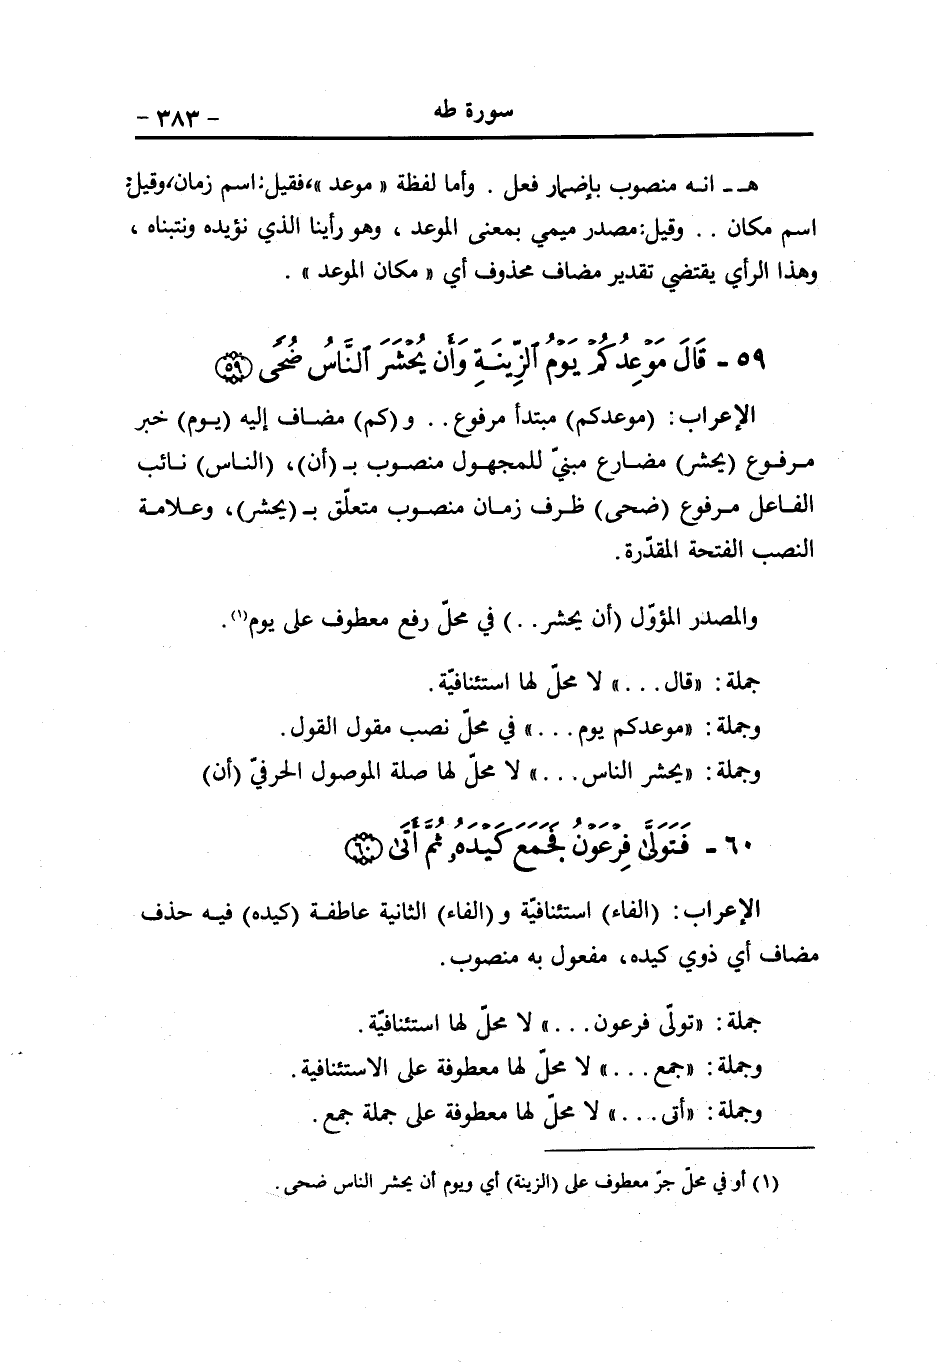 سورة طه - ٣٨٣ -
هـ - انه منصوب بإضمار فعل . وأما لفظة « موعد »،فقيل:اسم زمان،وقيل:
اسم مكان . . وقيل:مصدر ميمي بمعنى الموعد ، وهو رأينا الذي نؤيده ونتبناه ،
وهذا الرأي يقتضي تقدير مضاف محذوف أي « مكان الموعد » .
٥٩ - قَالَ مَوْعِدُكُمْ يَوْمُ ٱلزِّينَةِ وَأَن يُحْشَرَ ٱلنَّاسُ ضُحًى ﴿٥٩﴾
الإعراب: (موعدكم) مبتدأ مرفوع. . و(كم) مضاف إليه (يوم) خبر
مرفوع (يحشر) مضارع مبنيّ للمجهول منصوب بـ(أن)، (الناس) نائب
الفاعل مرفوع (ضحى) ظرف زمان منصوب متعلّق بـ(يحشر)، وعلامة
النصب الفتحة المقدّرة.
والمصدر المؤوّل (أن يحشر. .) في محلّ رفع معطوف على يوم(١).
جملة: «قال. . .» لا محلّ لها استئنافيّة.
وجملة: «موعدكم يوم. . .» في محلّ نصب مقول القول.
وجملة: «يحشر الناس. . .» لا محلّ لها صلة الموصول الحرفيّ (أن)
٦٠ - فَتَوَلَّىٰ فِرْعَوْنُ فَجَمَعَ كَيْدَهُۥ ثُمَّ أَتَىٰ ﴿٦٠﴾
الإعراب: (الفاء) استئنافيّة و(الفاء) الثانية عاطفة (كيده) فيه حذف
مضاف أي ذوي كيده، مفعول به منصوب.
جملة: «تولّى فرعون. . .» لا محلّ لها استئنافيّة.
وجملة: «جمع. . .» لا محلّ لها معطوفة على الاستئنافية.
وجملة: «أتى. . .» لا محلّ لها معطوفة على جملة جمع.
(١) أو في محلّ جرّ معطوف على (الزينة) أي ويوم أن يحشر الناس ضحى.